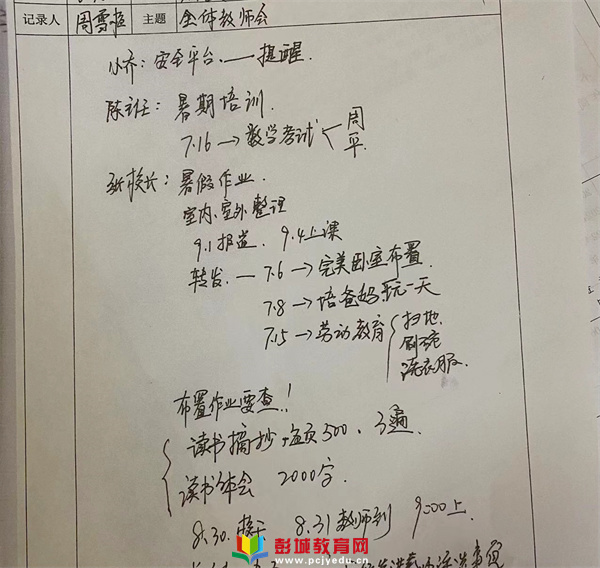 记录人 周雪 主题 全体教师会
小乔：安全平台.——提醒.
陈主任：暑期培训.
7.16→数学考试 周 平.
张校长：暑假作业.
室内、室外整理
9.1报道. 9.4上课
转发.—7.6→完美卧室布置.
7.8→陪爸妈玩一天
7.15→劳动教育 扫地. 刷碗 洗衣服.
布置作业要查.!
读书摘抄 500、3遍.
读书体会 2000字.
8.30. 8.31教师到 9:00上.
彭城教育网
www.pcjyedu.cn